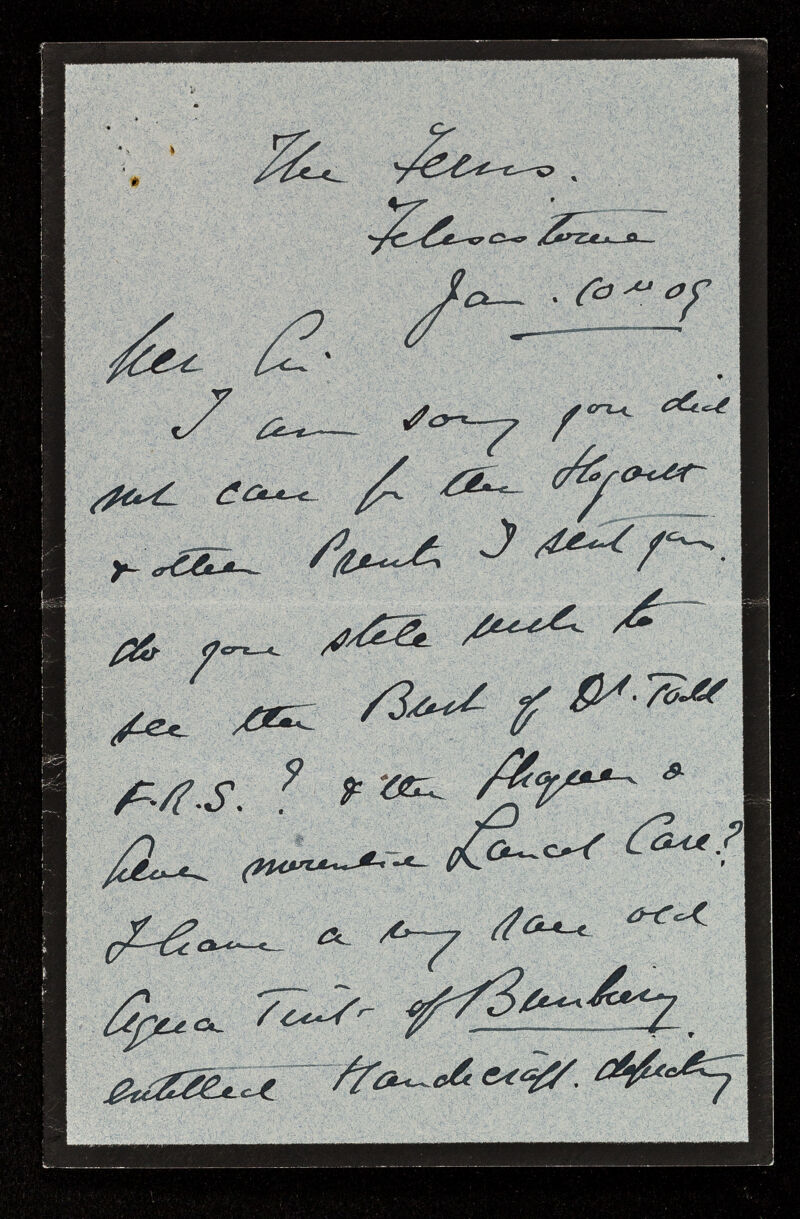 The Ferns.
Felixstowe
Jan. 10th 09
Dear Sir
I am sorry you did
not care for the Hogarth
& other Prints I sent you.
do you still wish to
see the Bust of Dr. Todd
F.R.S.? & the Shagreen &
Silver mounted Lancet Case?
I have a very rare old
Aqua Tint of Bunbury
entitled Handicraft. depicting